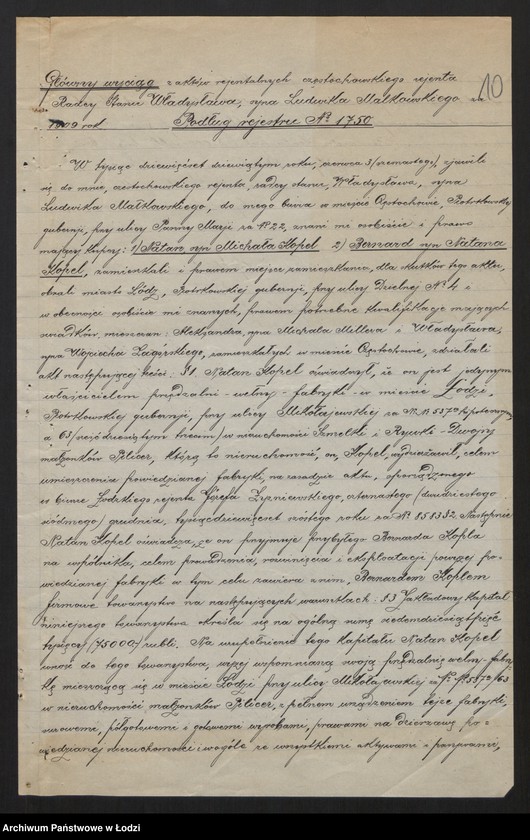 Główny wyciąg z aktów rejentalnych częstochowskiego rejenta
10
Radcy Stanu Władysława, syna Ludwika Małkowskiego za
1909 rok Podług rejestru № 1750
W tysiąc dziewięćset dziewiątym roku, czerwca 3/szesnastego), zjawili
się do mnie, częstochowskiego rejenta, radcy stanu, Władysława, syna
Ludwika Małkowskiego, do mego biura w mieście Częstochowie, Piotrkowskiej
gubernji, przy ulicy Panny Marji za № 22, znani mi osobiście i prawo
mający kupcy: 1) Natan syn Michała Kopel 2) Bernard syn Natana
Kopel, zamieszkali i prawem miejsce zamieszkania, dla skutków tego aktu,
obrali miasto Łódź, Piotrkowskiej gubernji, przy ulicy Dzielnej № 4 i
w obecności osobiście mi znanych, prawem potrzebne kwalifikacje mających
świadków, mieszczan: Aleksandra, syna Michała Millera i Władysława,
syna Wojciecha Zagórskiego, zamieszkałych w mieście Częstochowie, zdziałali
akt następującej treści: § 1 Natan Kopel oświadczył, iż on jest jedynym
właścicielem przędzalni - wełny - fabryki - w mieście Łodzi,
Piotrkowskiej gubernji, przy ulicy Mikołajewskiej za №№ 557
a 63 /sześćdziesiątym trzecim/ w nieruchomości Szmelki i Rywki - Dwojry
małżonków Pelicer, którą to nieruchomość, on, Kopel, wydzierżawił, celem
umieszczenia powiedzianej fabryki, na zasadzie aktu, sporządzonego
w biurze Łódzkiego rejenta Józefa Żyzniewskiego, czternastego (dwudziestego
siódmego) grudnia, tysiąc dziewięćset szóstego roku za № 8583 Następnie
Natan Kopel oświadcza, że on przyjmuje przybyłego Bernarda Kopla
na wspólnika, celem prowadzenia, rozwinięcia i eksploatacji powyżej po-
wiedzianej fabryki w tym celu zawiera z nim, Bernardem Koplem
firmowe towarzystwo na następujących warunkach: § 3 Zakładowy kapitał
niniejszego towarzystwa określa się na ogólną sumę siedemdziesiąt pięć
tysięcy /75000/ rubli. Na uzupełnienie tego kapitału Natan Kopel
wnosi do tego towarzystwa, wyżej wspomnianą swoją przędzalnię wełny - fabry-
kę mieszczącą się w mieście Łodzi przy ulicy Mikołajewskiej za №№ 557/63
w nieruchomości małżonków Pelicer, z pełnem urządzeniem tejże fabryki,
surowemi, półgotowemi i gotowemi wyrobami, prawami na dzierżawę po-
wiedzianej nieruchomości i wogóle ze wszystkiemi aktywami i passywami,
Archiwum Państwowe w Łodzi